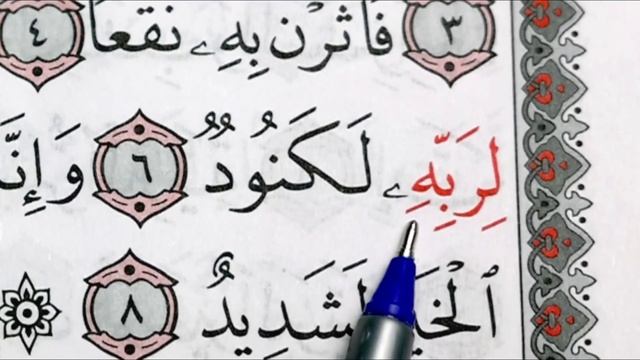 ٣ فَأَثَرْنَ بِهِۦ نَقْعًا ٤
لِرَبِّهِۦ لَكَنُودٌ ٦ وَإِنَّ
ٱلْخَيْرِ لَشَدِيدٌ ٨